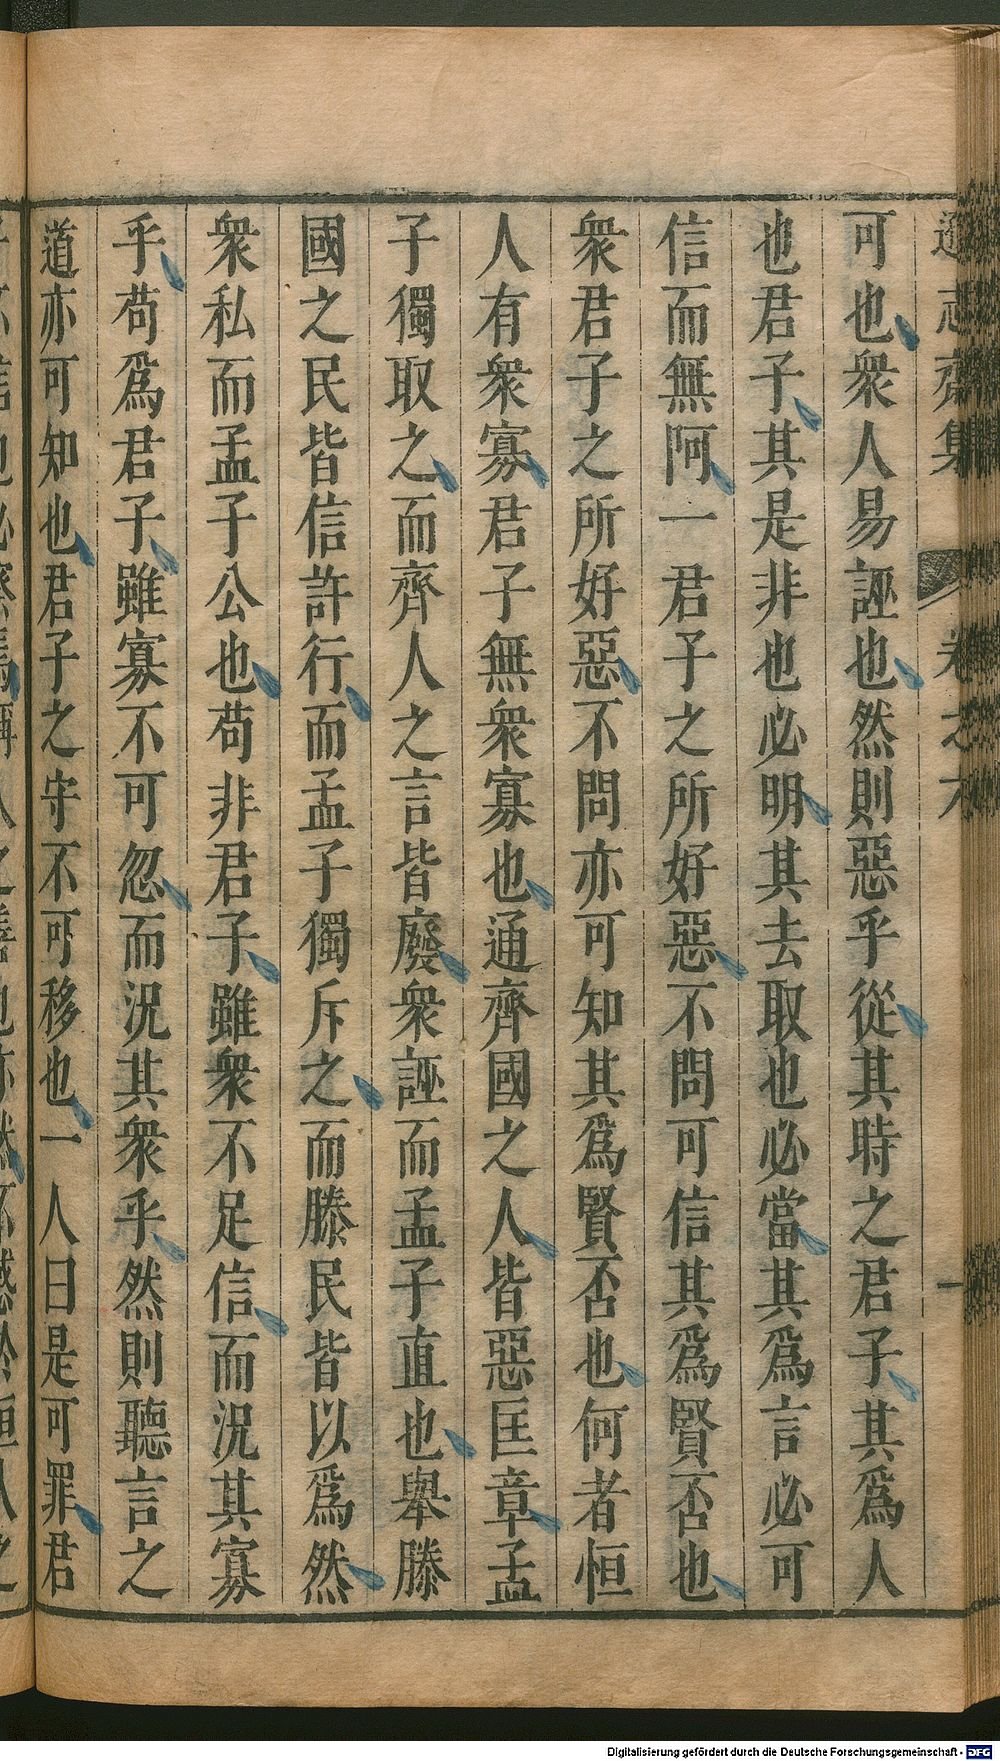 遜志齋集 卷之六 一
可也衆人易誣也然則惡乎從其時之君子其爲人
也君子其是非也必明其去取也必當其爲言必可
信而無阿一君子之所好惡不問可信其爲賢否也
衆君子之所好惡不問亦可知其爲賢否也何者恒
人有衆寡君子無衆寡也通齊國之人皆惡匡章孟
子獨取之而齊人之言皆廢衆誣而孟子直也舉滕
國之民皆信許行而孟子獨斥之而滕民皆以爲然
衆私而孟子公也苟非君子雖衆不足信而況其寡
乎苟爲君子雖寡不可忽而況其衆乎然則聽言之
道亦可知也君子之守不可移也一人曰是可罪君
Digitalisierung gefördert durch die Deutsche Forschungsgemeinschaft - DFG